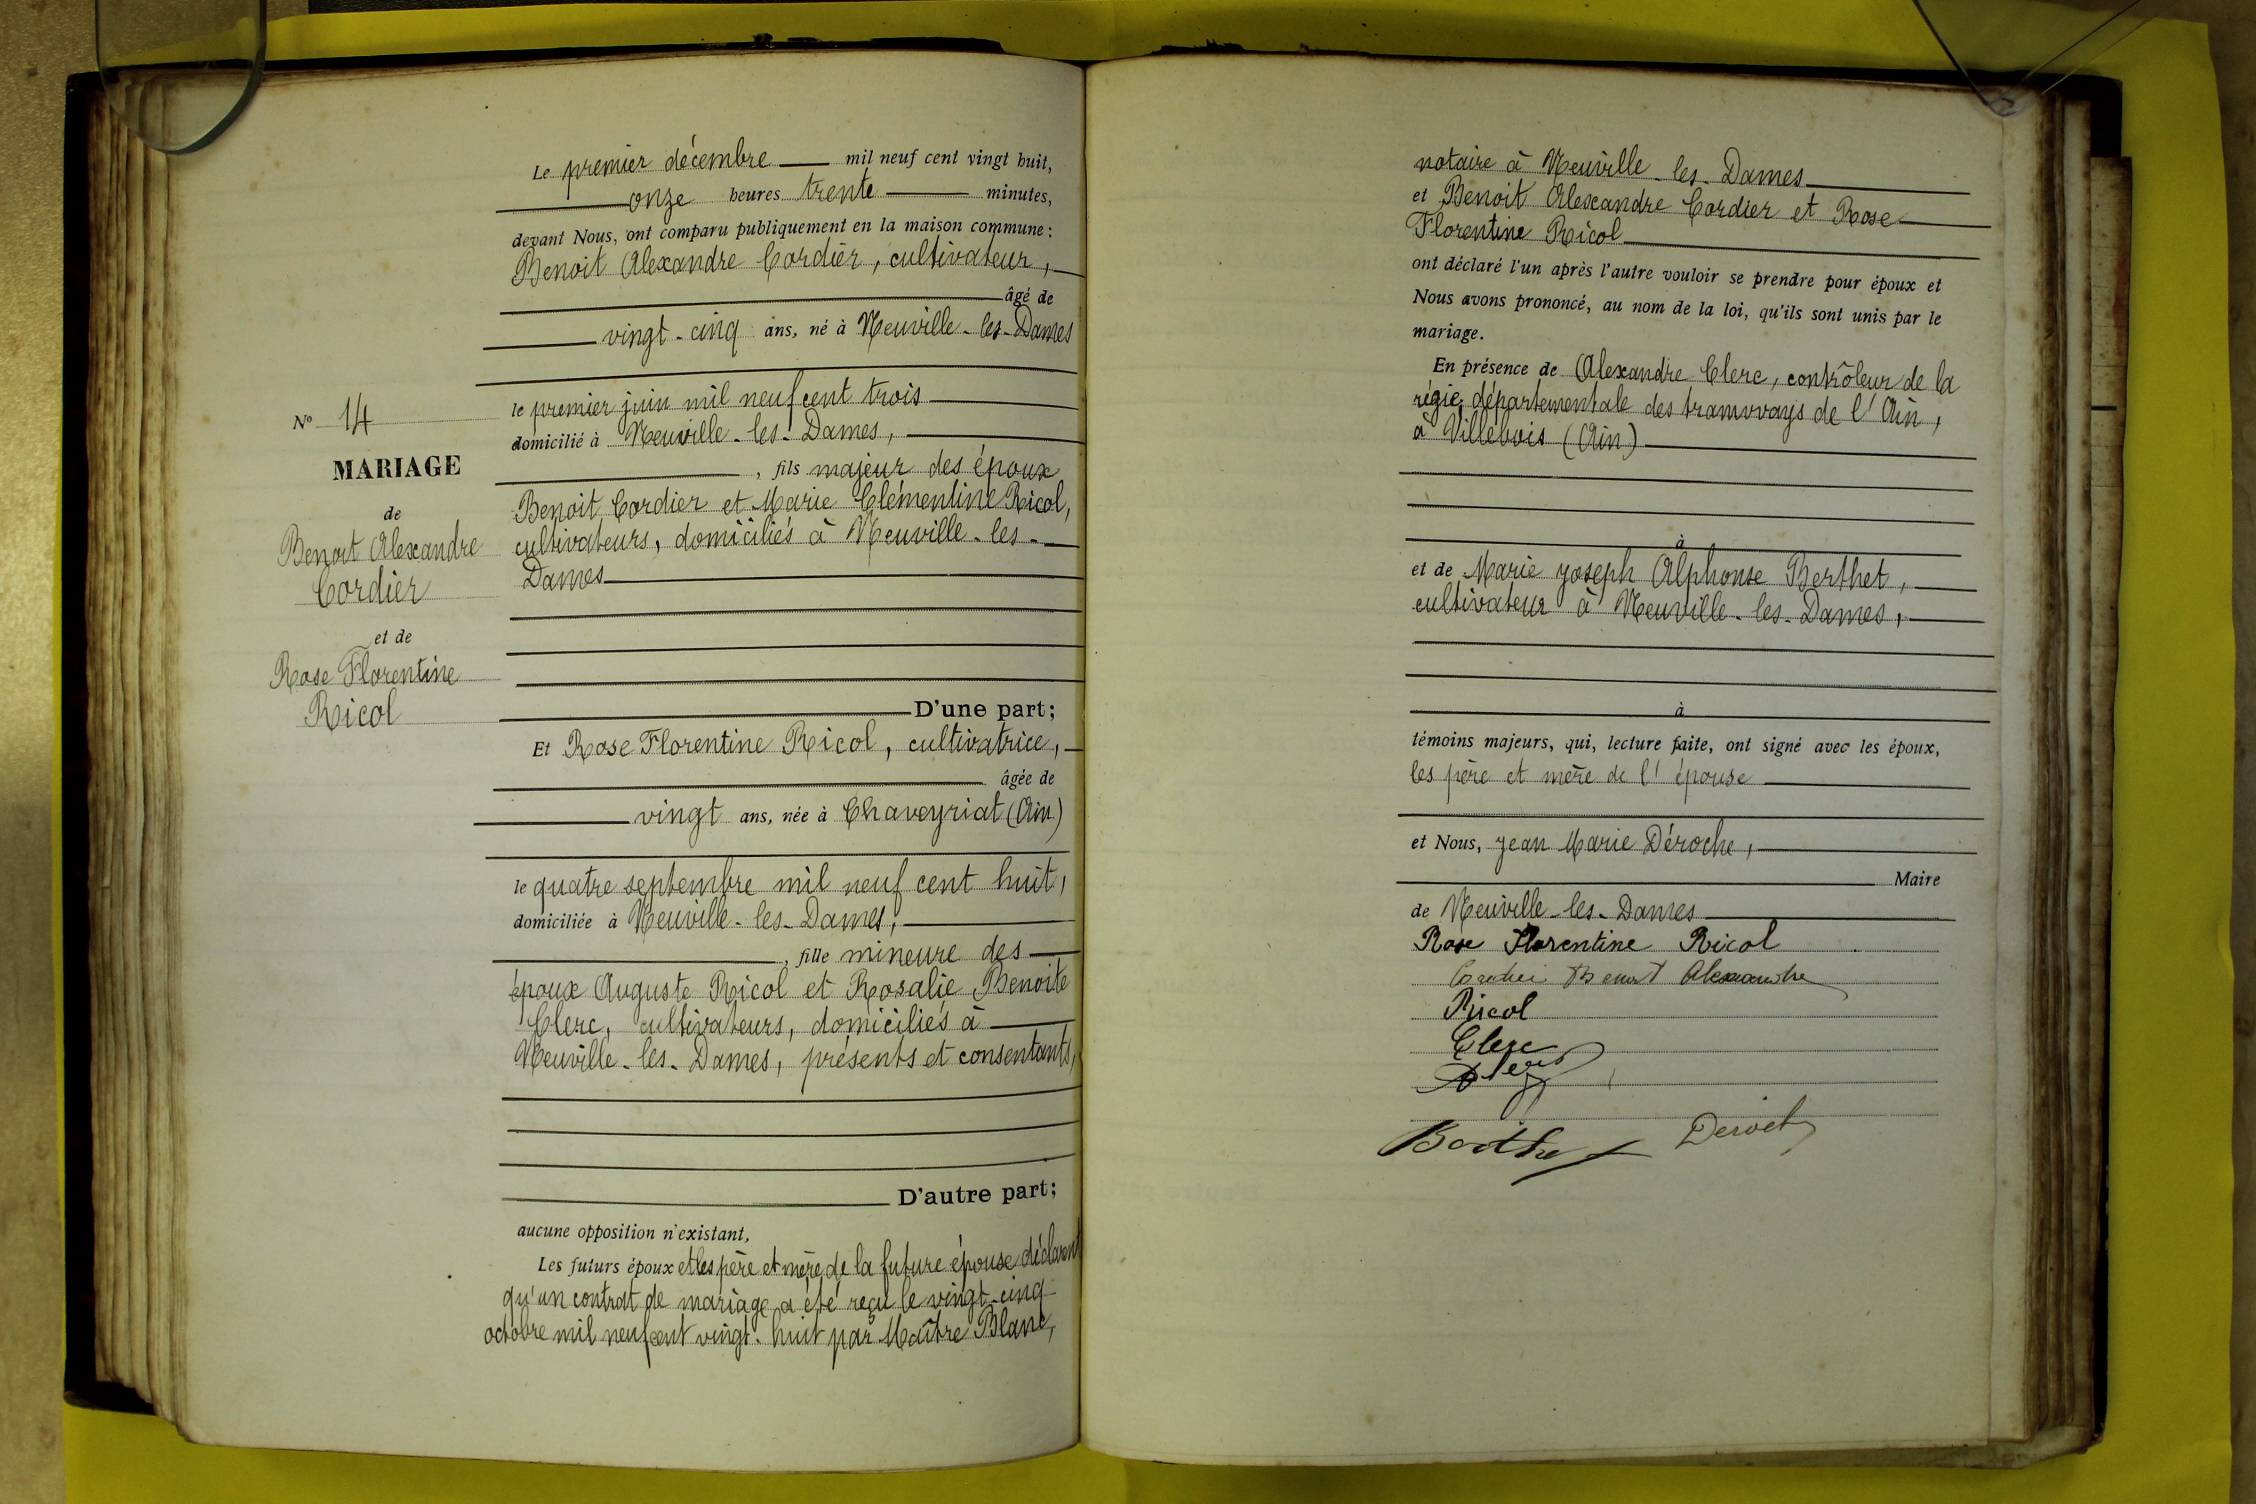 N° 14
MARIAGE
de
Benoit Alexandre
Cordier
et de
Rose Florentine
Ricol
Le premier décembre mil neuf cent vingt huit,
onze heures trente minutes,
devant Nous, ont comparu publiquement en la maison commune :
Benoit Alexandre Cordier, cultivateur,
âgé de
vingt-cinq ans, né à Neuville-les-Dames
le premier juin mil neuf cent trois
domicilié à Neuville-les-Dames,
, fils majeur des époux
Benoit Cordier et Marie Clémentine Ricol,
cultivateurs, domiciliés à Neuville-les-
Dames
D'une part;
Et Rose Florentine Ricol, cultivatrice,
âgée de
vingt ans, née à Chaveyriat (Ain)
le quatre septembre mil neuf cent huit,
domiciliée à Neuville-les-Dames,
, fille mineure des
époux Auguste Ricol et Rosalie Benoite
Clerc, cultivateurs, domiciliés à
Neuville-les-Dames, présents et consentants,
D'autre part;
aucune opposition n'existant,
Les futurs époux et les père et mère de la future épouse déclarent
qu'un contrat de mariage a été reçu le vingt-cinq
octobre mil neuf cent vingt-huit par Maître Blanc,
notaire à Neuville-les-Dames
et Benoit Alexandre Cordier et Rose
Florentine Ricol
ont déclaré l'un après l'autre vouloir se prendre pour époux et
Nous avons prononcé, au nom de la loi, qu'ils sont unis par le
mariage.
En présence de Alexandre Clerc, contrôleur de la
régie départementale des tramways de l'Ain,
à Villebois (Ain)
à
et de Marie Joseph Alphonse Berthet,
cultivateur à Neuville-les-Dames,
à
témoins majeurs, qui, lecture faite, ont signé avec les époux,
les père et mère de l'épouse
et Nous, Jean Marie Déroche,
Maire
de Neuville-les-Dames
Rose Florentine Ricol
Cordier Benoit Alexandre
Ricol
Clerc
Berthet